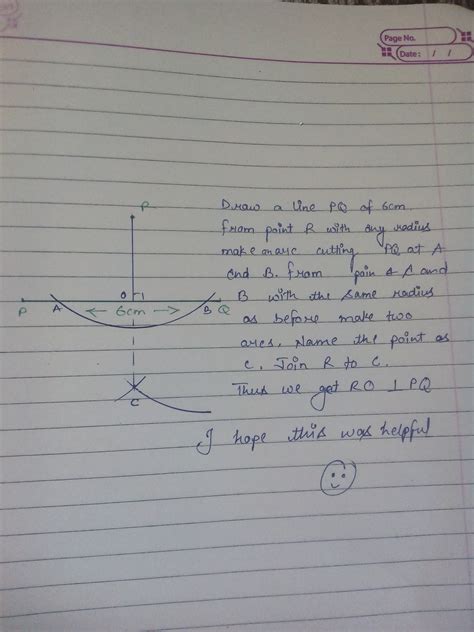 Page No.
Date: / /
R
Draw a line PQ of 6cm
from point R with any radius
make an arc cutting PQ at A
and B. from poin t A and
B with the same radius
as before make two
arcs. Name the point as
C. Join R to C.
Thus we get RO ⊥ PQ
I hope this was helpful
O
P A ← 6cm → B Q
C